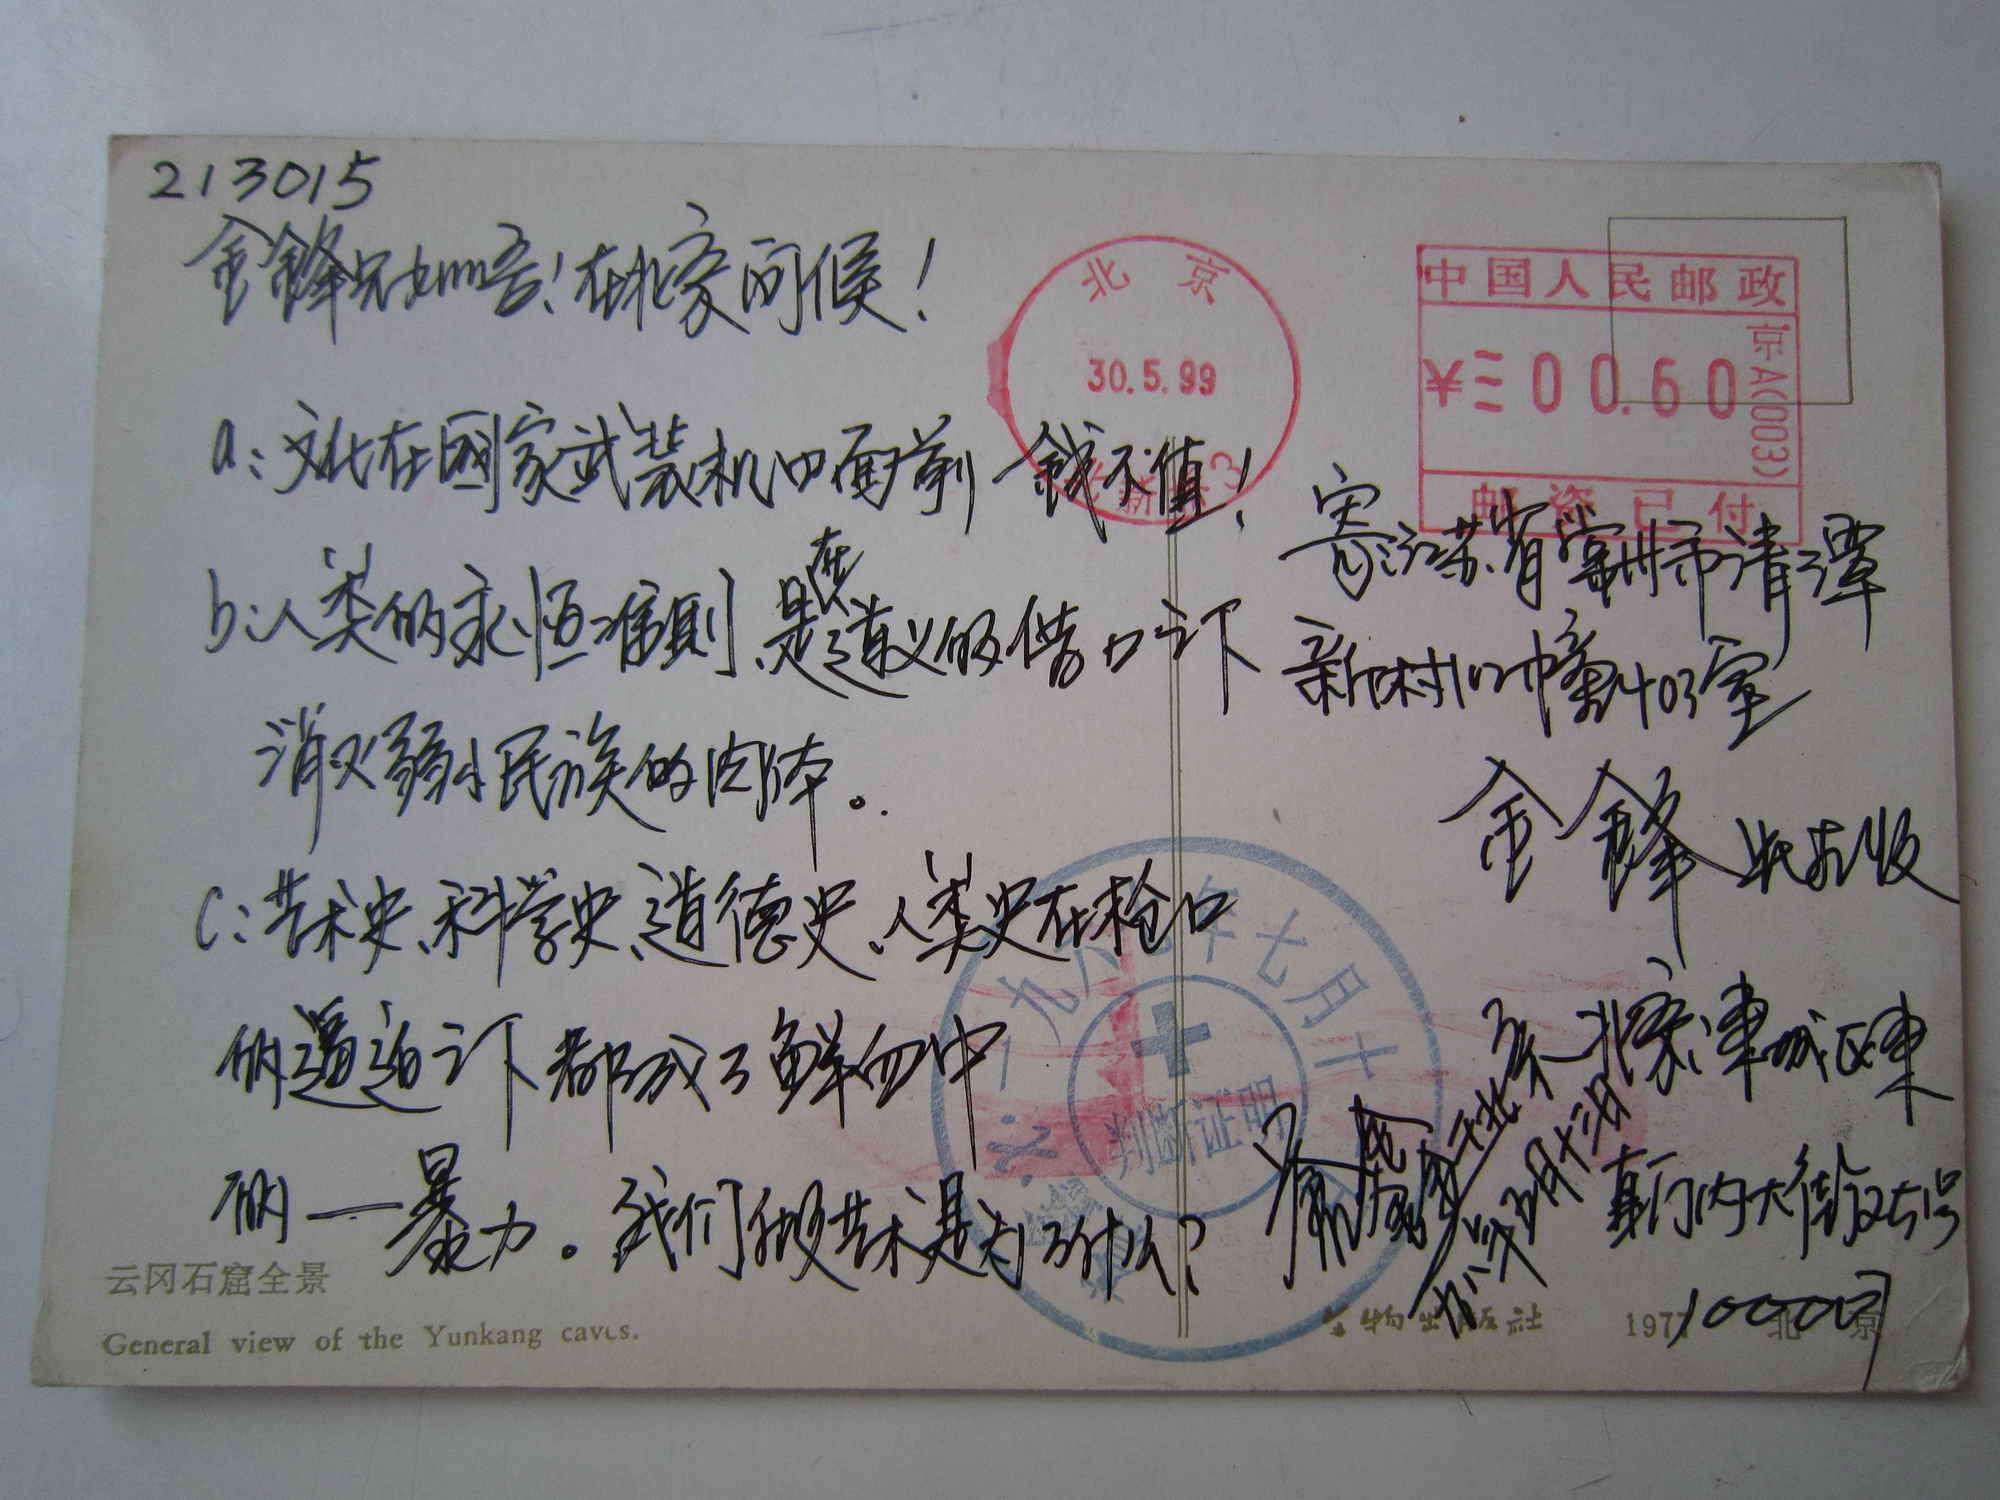 213015
金鋒兄如晤！在北京问候！
a：文化在國家武装机口面前一錢不值！
b：人类的永恒准则、是在道义的借口之下
消灭弱小民族的肉体。
c：艺术史、科学史、道德史、人类史在枪口
的逼迫之下都成了鲜血中
的——暴力。我们做艺术是为了什么？
北京
30.5.99
中国人民邮政
¥00.60
京A(003)
邮资已付
寄：江苏省常州市清潭
新村102幢403室
金鋒 先生收
北京、東城区東
直门内大街
100007
一九八七年七月十
判断证明
云冈石窟全景
General view of the Yunkang caves.
文物出版社 1977 北京